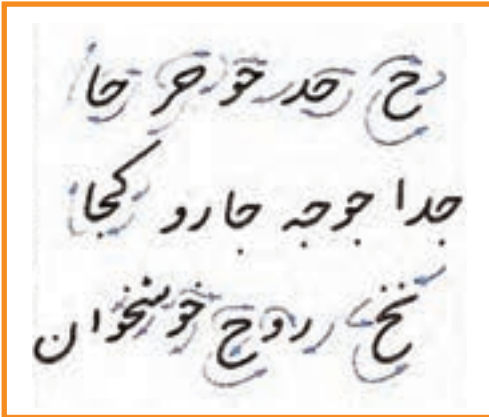 ح حد حو حر حا
جدا جوجه جارو کجا
نخ روح